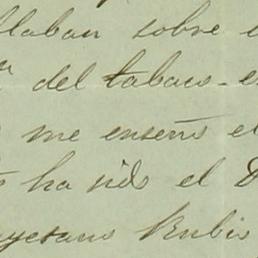 llaban sobre e
del tabaco-e
me enseñó el
ha sido el D
ayetano Rubio